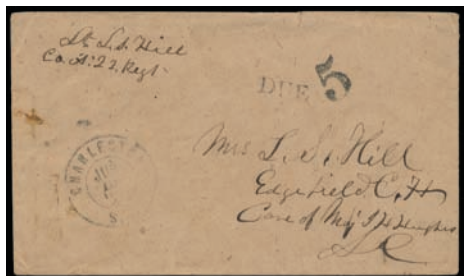 Lt L. S. Hill
Co. A. 22 Regt
DUE 5
CHARLEST
JU
S.
Mrs L. S. Hill
Edgefield C. H
Care of Maj J. H. Hughes
S C